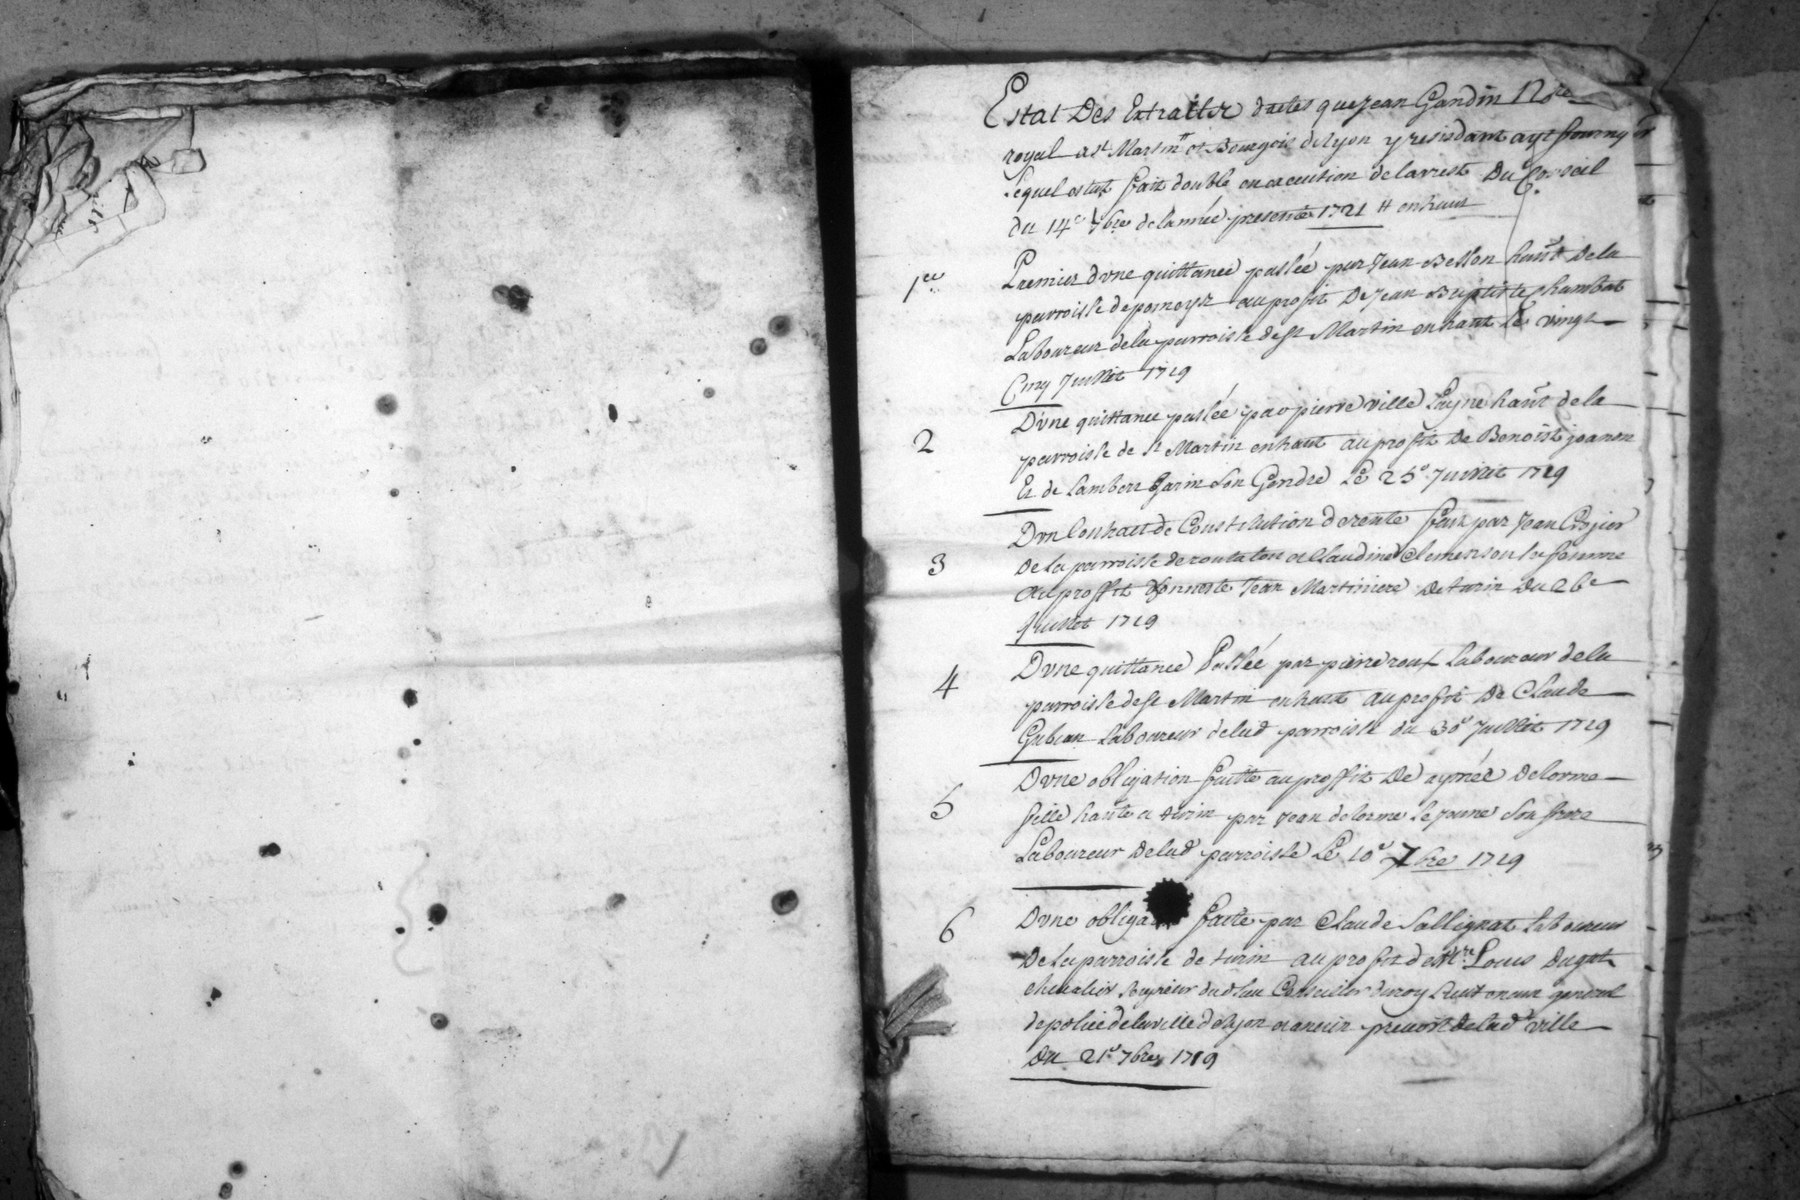 Estat Des Extraits dactes que Jean Gandin Nore
royal a st Martin et Bourgois de Lyon y residant a fourny
Lequel estat fait double en execution de larrest Du Conseil
du 14e 7bre de lannée presente 1721 # enhaut
1er Premier dvne quittance passée par Jean Besson hant De la
parroisse de pomeys au profit De Jean Baptiste Chambat
Laboureur de la parroisse de st Martin en haut Le vingt
Cinq Juillet 1719
2 D'vne quittance passée par pierre ville Layne hant de la
parroisse de st Martin enhaut au profit De Benoist joanon
Et de Lambert Garin son Gendre Le 25e Juillet 1719
3 Dvn Contract de Constitution de rente fait par Jean Crozier
De la parroisse de rontalon et Claudine Clemenson sa femme
Au proffit d'honneste Jean Martiniere De turin Du 26e
Juillet 1719
4 Dvne quittance Passée par pierre roux Laboureur de la
parroisse de st Martin enhaut Au profit De Claude
Gubian Laboureur de lad parroisse du 30e Juillet 1719
5 Dvne obligation faitte au proffit De aymée Delorme
fille hante a turin par Jean delorme le Jeune Son frere
Laboureur De lad parroisse Le 10e 7bre 1719
6 Dvne obliga faite par Claude Sallignat Laboureur
De la parroisse de turin au profit de Mre Louis Dugat
chevalier Conseiller du roy Lieutenant general
de police de la ville de Lyon et ancien prevost de lad ville
Du 21e 7bre 1719